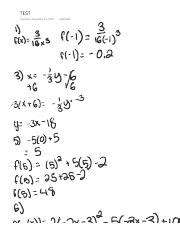 TEST
1)
f(x) = 3/16x^3 f(-1) = 3/16(-1)^3
f(-1) = -0.2
3) x = -1/3 y - 6
+6 +6
-3(x+6) = -1/3 y · -3
y = -3x - 18
5) -5(0) + 5
= 5
f(5) = (5)² + 5(5) - 2
f(5) = 25 + 25 - 2
f(5) = 48
6)